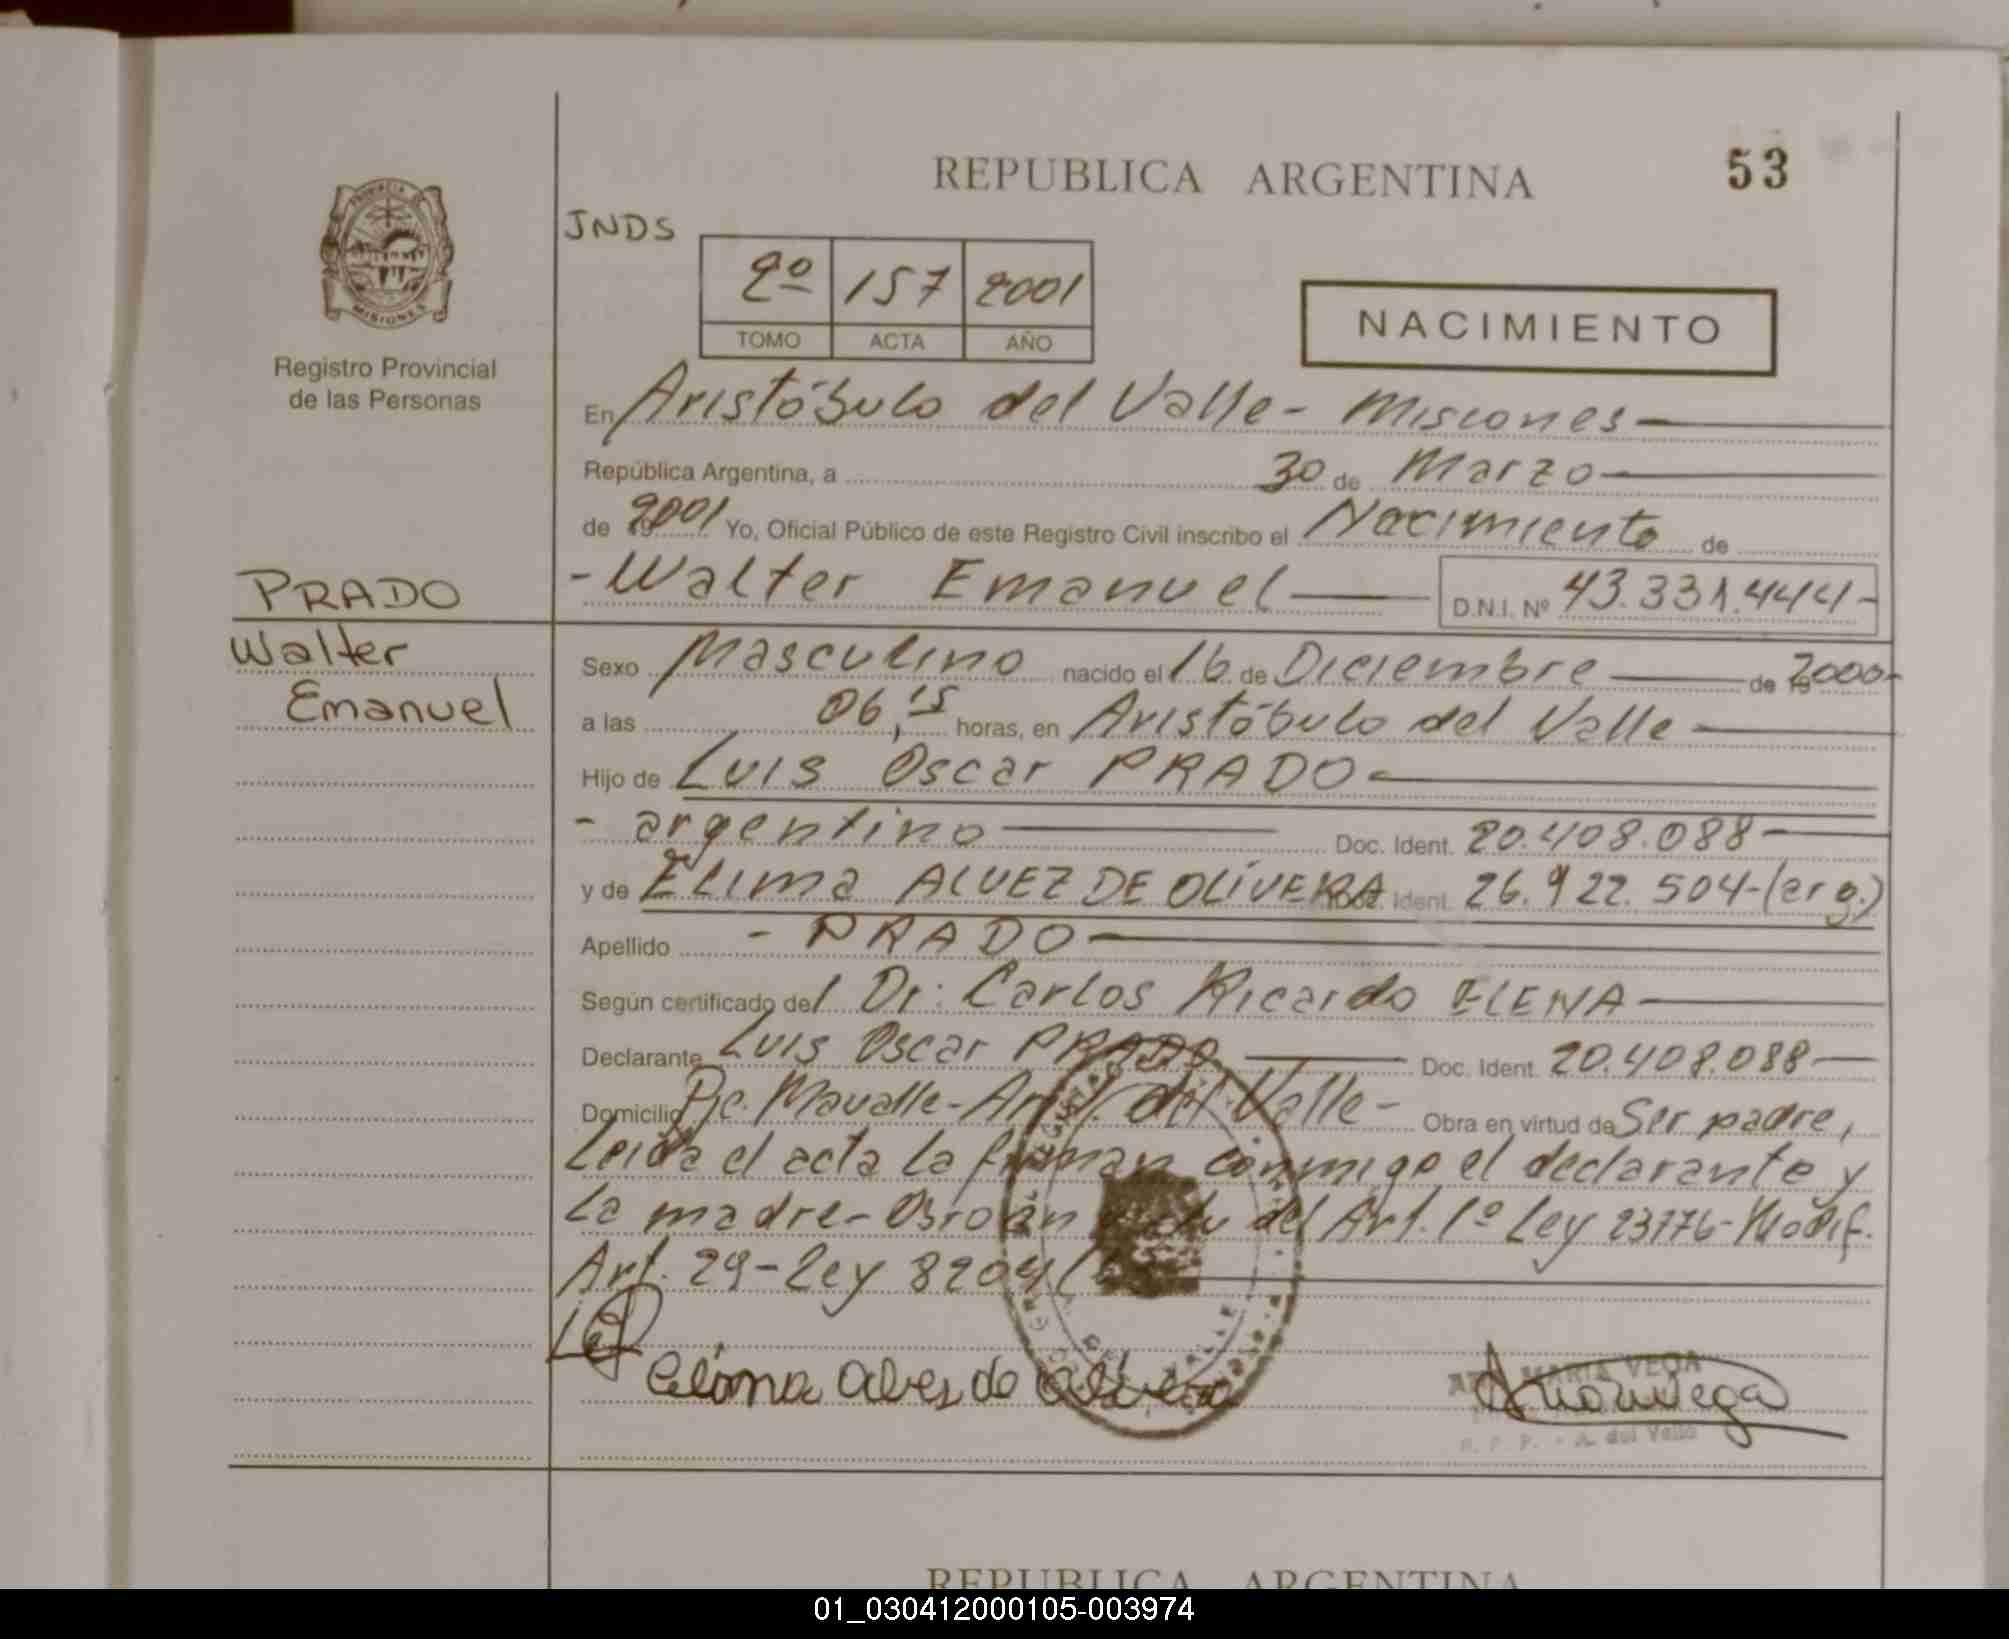 REPUBLICA ARGENTINA
53
JNDS
2º 157 2001
TOMO ACTA AÑO
NACIMIENTO
PROVINCIA
MISIONES
Registro Provincial
de las Personas
En Aristóbulo del Valle - Misiones
República Argentina, a 30 de Marzo
de 2001 Yo, Oficial Público de este Registro Civil inscribo el Nacimiento de
PRADO
- Walter Emanuel D.N.I. Nº 43.331.444-
Walter
Emanuel
Sexo Masculino nacido el 16 de Diciembre de 2000-
a las 06,15 horas, en Aristóbulo del Valle
Hijo de Luis Oscar PRADO
- argentino Doc. Ident. 20.408.088-
y de Elima ALVEZ DE OLIVERA Doc. Ident. 26.922.504-(arg.)
Apellido - PRADO
Según certificado del Dr: Carlos Ricardo ELENA
Declarante Luis Oscar PRADO Doc. Ident. 20.408.088-
Domicilio Pje. Mavalle-Arist. del Valle- Obra en virtud de Ser padre,
Leída el acta la firman conmigo el declarante y
la madre- Obro en del Art. 1º Ley 23776-Modif.
Art. 29-Ley 8204
Elima Alves de Olivera
ANA MARIA VEGA
R. P. P. - A. del Valle
REPUBLICA ARGENTINA
01_030412000105-003974